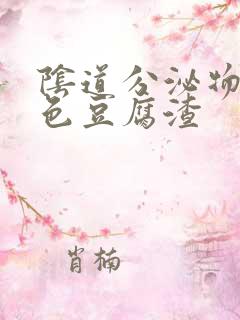 陰道分泌物
色豆腐渣
肖楠